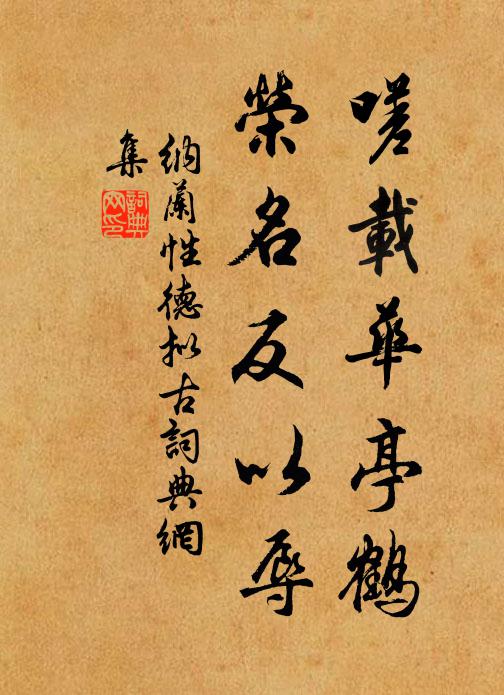 嗟載華亭鶴
榮名反以辱
納蘭性德擬古詞典網
集
詞典網印